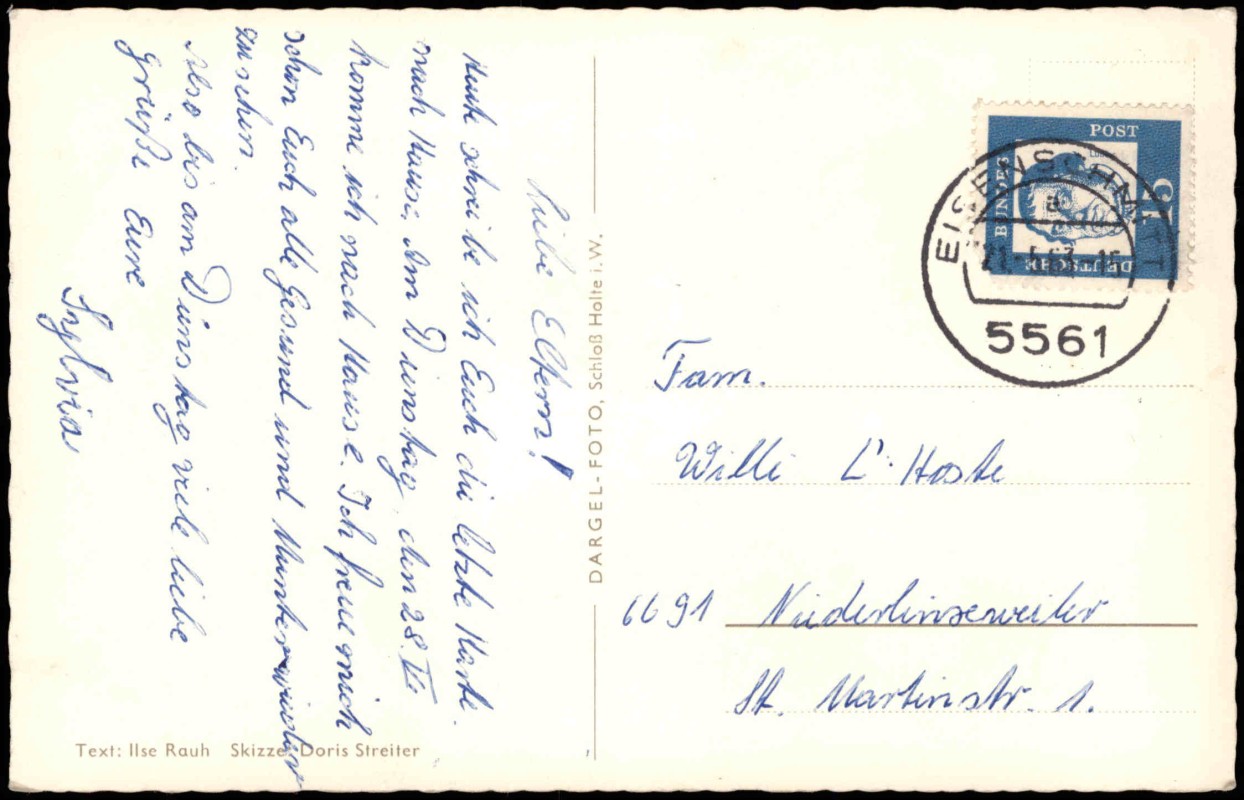 Liebe Eltern!
Heute schreibe ich Euch die letzte Karte
nach Hause. Am Dienstag, den 28. V.
komme ich nach Hause. Ich freue mich
schon Euch alle Gesund und Munter wieder
zusehen.
Also bis am Dienstag viele liebe
Grüße Eure
Sylvia
DARGEL-FOTO, Schloß Holte i.W.
Text: Ilse Rauh Skizze: Doris Streiter
POST
BUNDES
DEUTSCHE
15
EISENSCHMITT
a
21.-5.63-15
5561
Fam.
Willi L'Hoste
6691 Niederlinxweiler
St. Martinstr. 1.